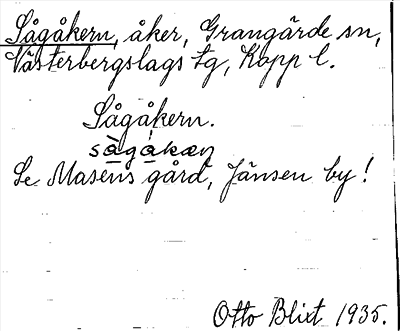 Sågåkern, åker, Grangärde sn,
Västerbergslags tg, Kopp l.
Sågåkern.
sågåkæn
Se Masens gård, Jänsen by!
Otto Blixt 1935.